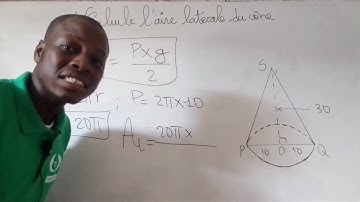 Calcule l'aire latérale du cône
= P x g
2
; P = 2π x 10
20π
A_L = 20π x
S
30
P 10 O 10 Q